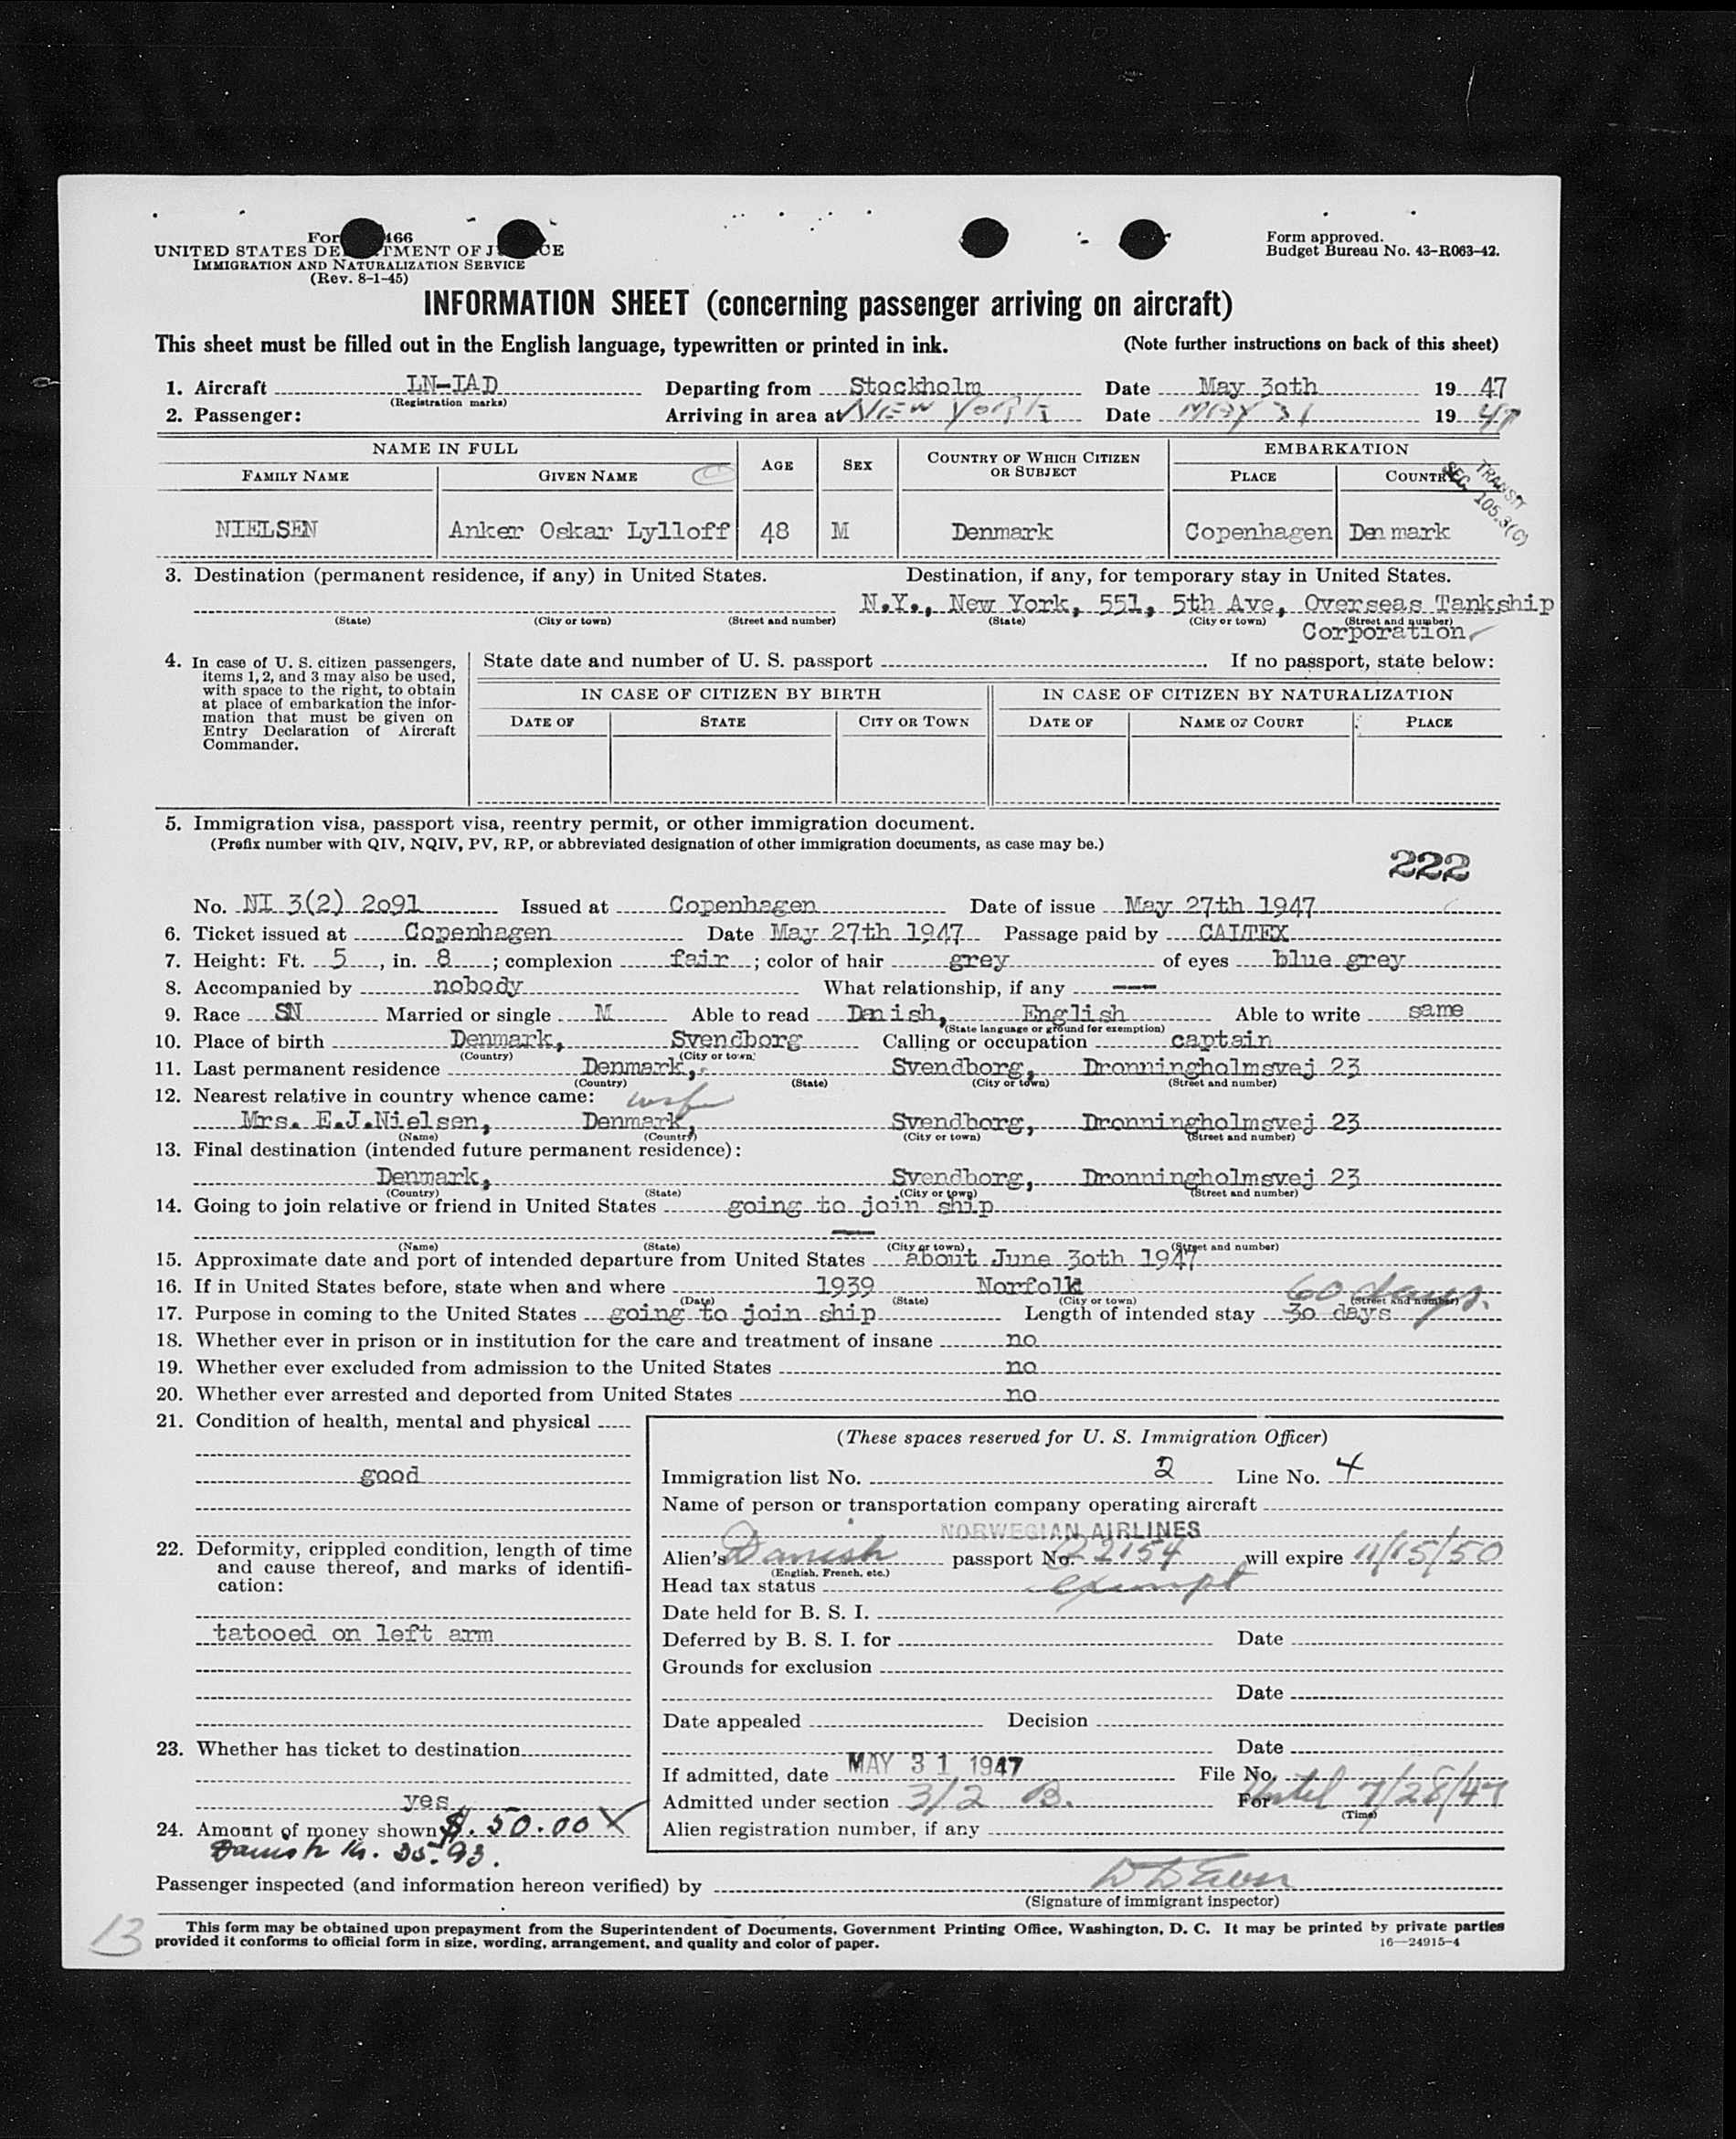 Form 466
UNITED STATES DEPARTMENT OF JUSTICE
IMMIGRATION AND NATURALIZATION SERVICE
(Rev. 8-1-45)
Form approved.
Budget Bureau No. 43-R063-42.
INFORMATION SHEET (concerning passenger arriving on aircraft)
This sheet must be filled out in the English language, typewritten or printed in ink. (Note further instructions on back of this sheet)
1. Aircraft LN-IAD Departing from Stockholm Date May 3oth 19 47
(Registration marks)
2. Passenger: Arriving in area at NEW YORK Date MAY 31 19 47
NAME IN FULL AGE SEX COUNTRY OF WHICH CITIZEN OR SUBJECT EMBARKATION
FAMILY NAME GIVEN NAME PLACE COUNTRY
TRANSIT
SEC. 105.3(C)
NIELSEN Anker Oskar Lylloff 48 M Denmark Copenhagen Denmark
3. Destination (permanent residence, if any) in United States. Destination, if any, for temporary stay in United States.
N.Y., New York, 551, 5th Ave, Overseas Tankship
(State) (City or town) (Street and number) (State) (City or town) (Street and number)
Corporation
4. In case of U. S. citizen passengers, items 1, 2, and 3 may also be used, with space to the right, to obtain at place of embarkation the information that must be given on Entry Declaration of Aircraft Commander.
State date and number of U. S. passport . If no passport, state below:
IN CASE OF CITIZEN BY BIRTH IN CASE OF CITIZEN BY NATURALIZATION
DATE OF STATE CITY OR TOWN DATE OF NAME OF COURT PLACE
5. Immigration visa, passport visa, reentry permit, or other immigration document.
(Prefix number with QIV, NQIV, PV, RP, or abbreviated designation of other immigration documents, as case may be.)
222
No. NI 3(2) 2o91 Issued at Copenhagen Date of issue May 27th 1947
6. Ticket issued at Copenhagen Date May 27th 1947 Passage paid by CALTEX
7. Height: Ft. 5, in. 8; complexion fair; color of hair grey of eyes blue grey
8. Accompanied by nobody What relationship, if any ---
9. Race SN Married or single M Able to read Danish, English Able to write same
(State language or ground for exemption)
10. Place of birth Denmark, Svendborg Calling or occupation captain
(Country) (City or town)
11. Last permanent residence Denmark, Svendborg, Dronningholmsvej 23
(Country) (State) (City or town) (Street and number)
12. Nearest relative in country whence came: wife
Mrs. E.J.Nielsen, Denmark, Svendborg, Dronningholmsvej 23
(Name) (Country) (City or town) (Street and number)
13. Final destination (intended future permanent residence):
Denmark, Svendborg, Dronningholmsvej 23
(Country) (State) (City or town) (Street and number)
14. Going to join relative or friend in United States going to join ship
(Name) (State) (City or town) (Street and number)
15. Approximate date and port of intended departure from United States about June 3oth 1947
16. If in United States before, state when and where 1939 Norfolk
(Date) (State) (City or town) (Street and number)
60 days.
17. Purpose in coming to the United States going to join ship Length of intended stay 3o days
18. Whether ever in prison or in institution for the care and treatment of insane no
19. Whether ever excluded from admission to the United States no
20. Whether ever arrested and deported from United States no
21. Condition of health, mental and physical
good
22. Deformity, crippled condition, length of time and cause thereof, and marks of identification:
tatooed on left arm
23. Whether has ticket to destination
yes
24. Amount of money shown $. 50.00 X
Danish Kr. 35.93.
(These spaces reserved for U. S. Immigration Officer)
Immigration list No. 2 Line No. 4
Name of person or transportation company operating aircraft
NORWEGIAN AIRLINES
Alien's Danish passport No. 22154 will expire 11/15/50
(English, French, etc.)
Head tax status exempt
Date held for B. S. I.
Deferred by B. S. I. for Date
Grounds for exclusion
Date
Date appealed Decision
Date
If admitted, date MAY 31 1947 File No.
Admitted under section 3/2 B. For Until 7/28/47
(Time)
Alien registration number, if any
Passenger inspected (and information hereon verified) by
(Signature of immigrant inspector)
13
This form may be obtained upon prepayment from the Superintendent of Documents, Government Printing Office, Washington, D. C. It may be printed by private parties
provided it conforms to official form in size, wording, arrangement, and quality and color of paper.
16—24915-4